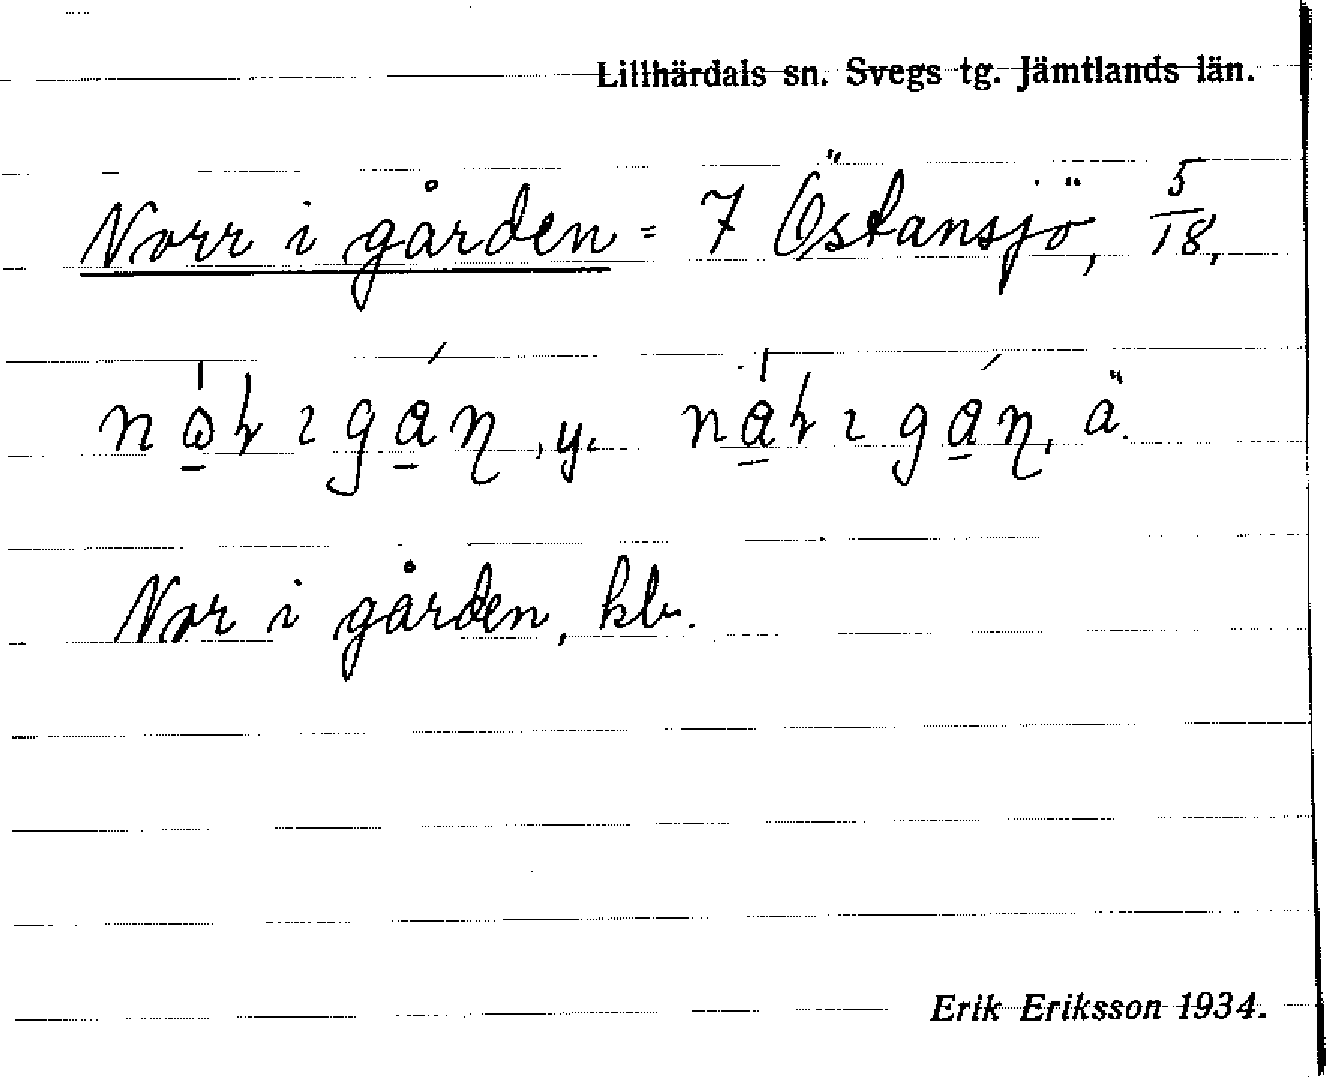 Lillhärdals sn. Svegs tg. Jämtlands län.
Norr i gården = 7 Östansjö, 5/18,
y. ä.
Nor i gården, kbr.
Erik Eriksson 1934.